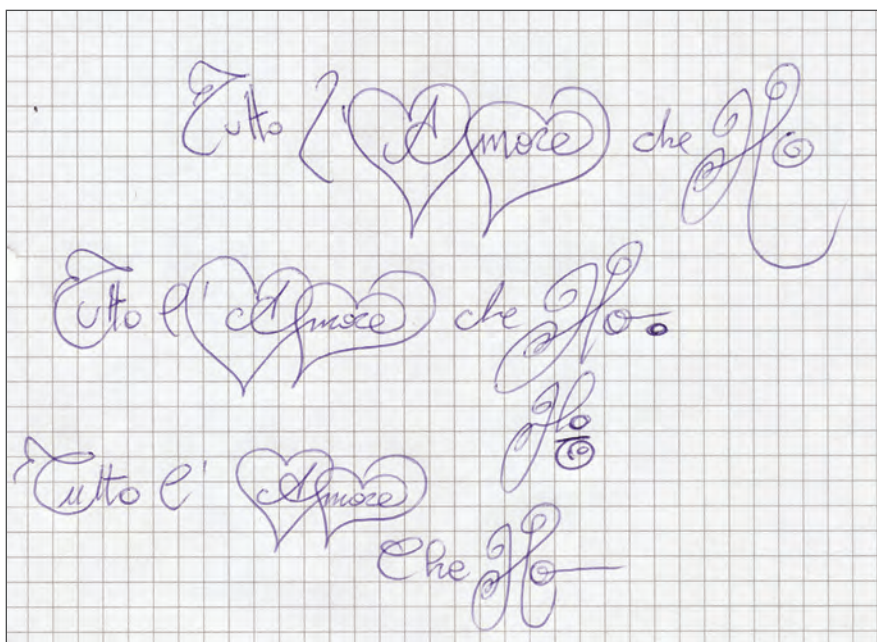 Tutto l'Amore che Ho
Tutto l'Amore che Ho
Ho
Tutto l'Amore
Che Ho